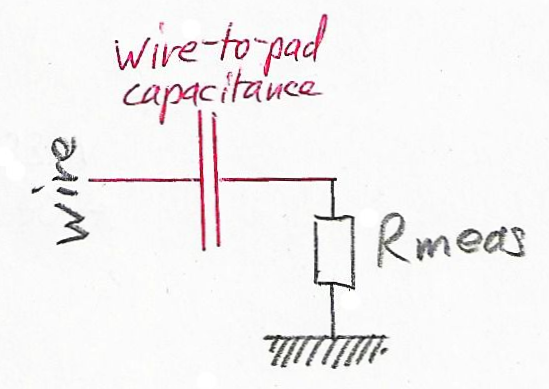 wire-to-pad
capacitance
wire
Rmeas